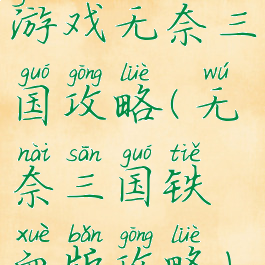 游戏无奈三
guó gōng lüè wú
国攻略(无
nài sān guó tiě
奈三国铁
xuè bǎn gōng lüè
血版攻略)